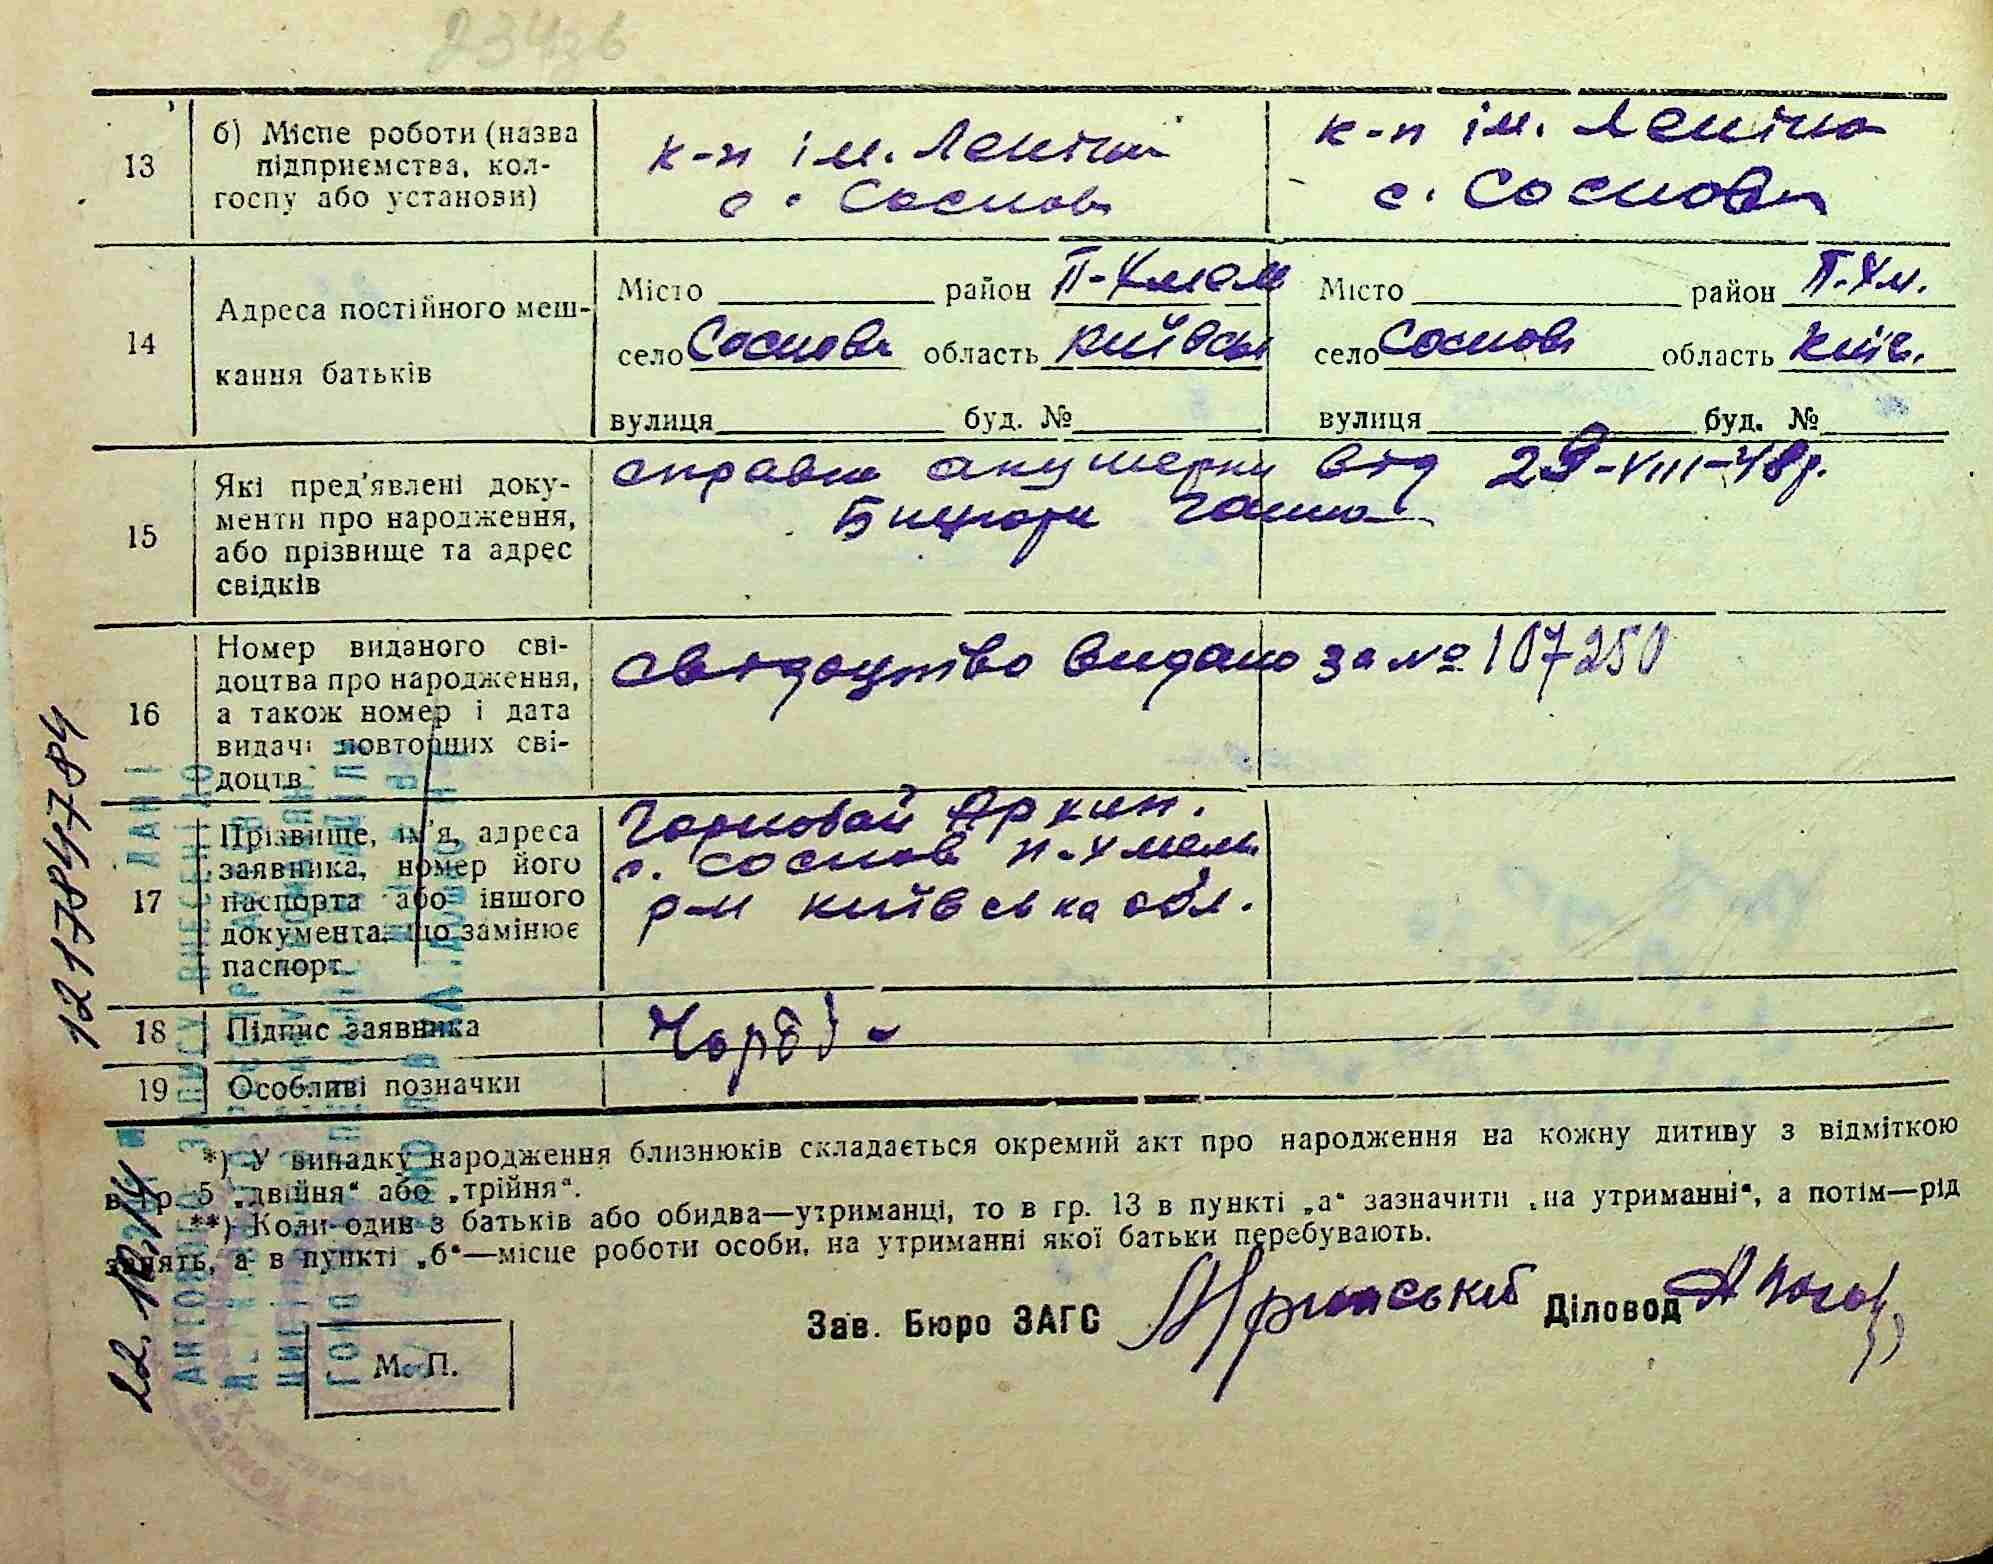 13
б) Місце роботи (назва
підприємства, кол-
госпу або установи)
к-п ім. Леніна
с. Соснова
к-п ім. Леніна
с. Соснова
14
Адреса постійного меш-
кання батьків
Місто район П-Хмель
село Соснова область київськ
вулиця буд. №
Місто район П-Хм.
село Соснова область київ.
вулиця буд. №
15
Які пред'явлені доку-
менти про народження,
або прізвище та адрес
свідків
справка акушерки від 29-VIII-48р.
Ганна
16
Номер виданого сві-
доцтва про народження,
а також номер і дата
видачі повторних сві-
доцтв
свідоцтво видано за № 107250
17
Прізвище, ім'я, адреса
заявника, номер його
паспорта або іншого
документа, що замінює
паспорт.
с. Соснова П-Хмель
р-н київська обл.
18
Підпис заявника
19
Особливі позначки
*) У випадку народження близнюків складається окремий акт про народження на кожну дитину з відміткою
в гр. 5 „двійня“ або „трійня“.
**) Коли один з батьків або обидва—утриманці, то в гр. 13 в пункті „а“ зазначити „на утриманні“, а потім—рід
занять, а в пункті „б“—місце роботи особи, на утриманні якої батьки перебувають.
Зав. Бюро ЗАГС
Діловод
М. П.
1217847784